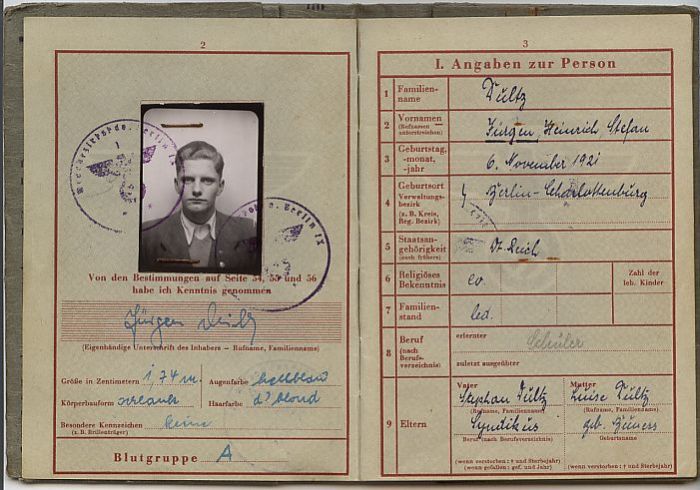 2
Wehrbezirkskdo. Berlin IX
Berlin IX
Von den Bestimmungen auf Seite 54, 55 und 56
habe ich Kenntnis genommen
Jürgen
(Eigenhändige Unterschrift des Inhabers – Rufname, Familienname)
Größe in Zentimetern 1,74 m. Augenfarbe hellblau
Körperbauform Haarfarbe d'blond
Besondere Kennzeichen keine
(z. B. Brillenträger)
Blutgruppe A
3
I. Angaben zur Person
1 Familienname
2 Vornamen (Rufnamen unterstreichen) Jürgen, Heinrich Stefan
3 Geburtstag, -monat, -jahr 6. November 1921
4 Geburtsort Verwaltungsbezirk (z. B. Kreis, Reg. Bezirk) Berlin-Charlottenburg
5 Staatsangehörigkeit (auch frühere) Dt. Reich
6 Religiöses Bekenntnis ev. Zahl der leb. Kinder
7 Familienstand led.
8 Beruf (nach Berufsverzeichnis) erlernter Schüler
zuletzt ausgeübter
9 Eltern
Vater Mutter
Stephan Luise
(Rufname, Familienname) (Rufname, Familienname)
Syndikus geb.
Beruf (nach Berufsverzeichnis) Geburtsname
(wenn verstorben: † und Sterbejahr) (wenn verstorben: † und Sterbejahr)
(wenn gefallen: gef. und Jahr)